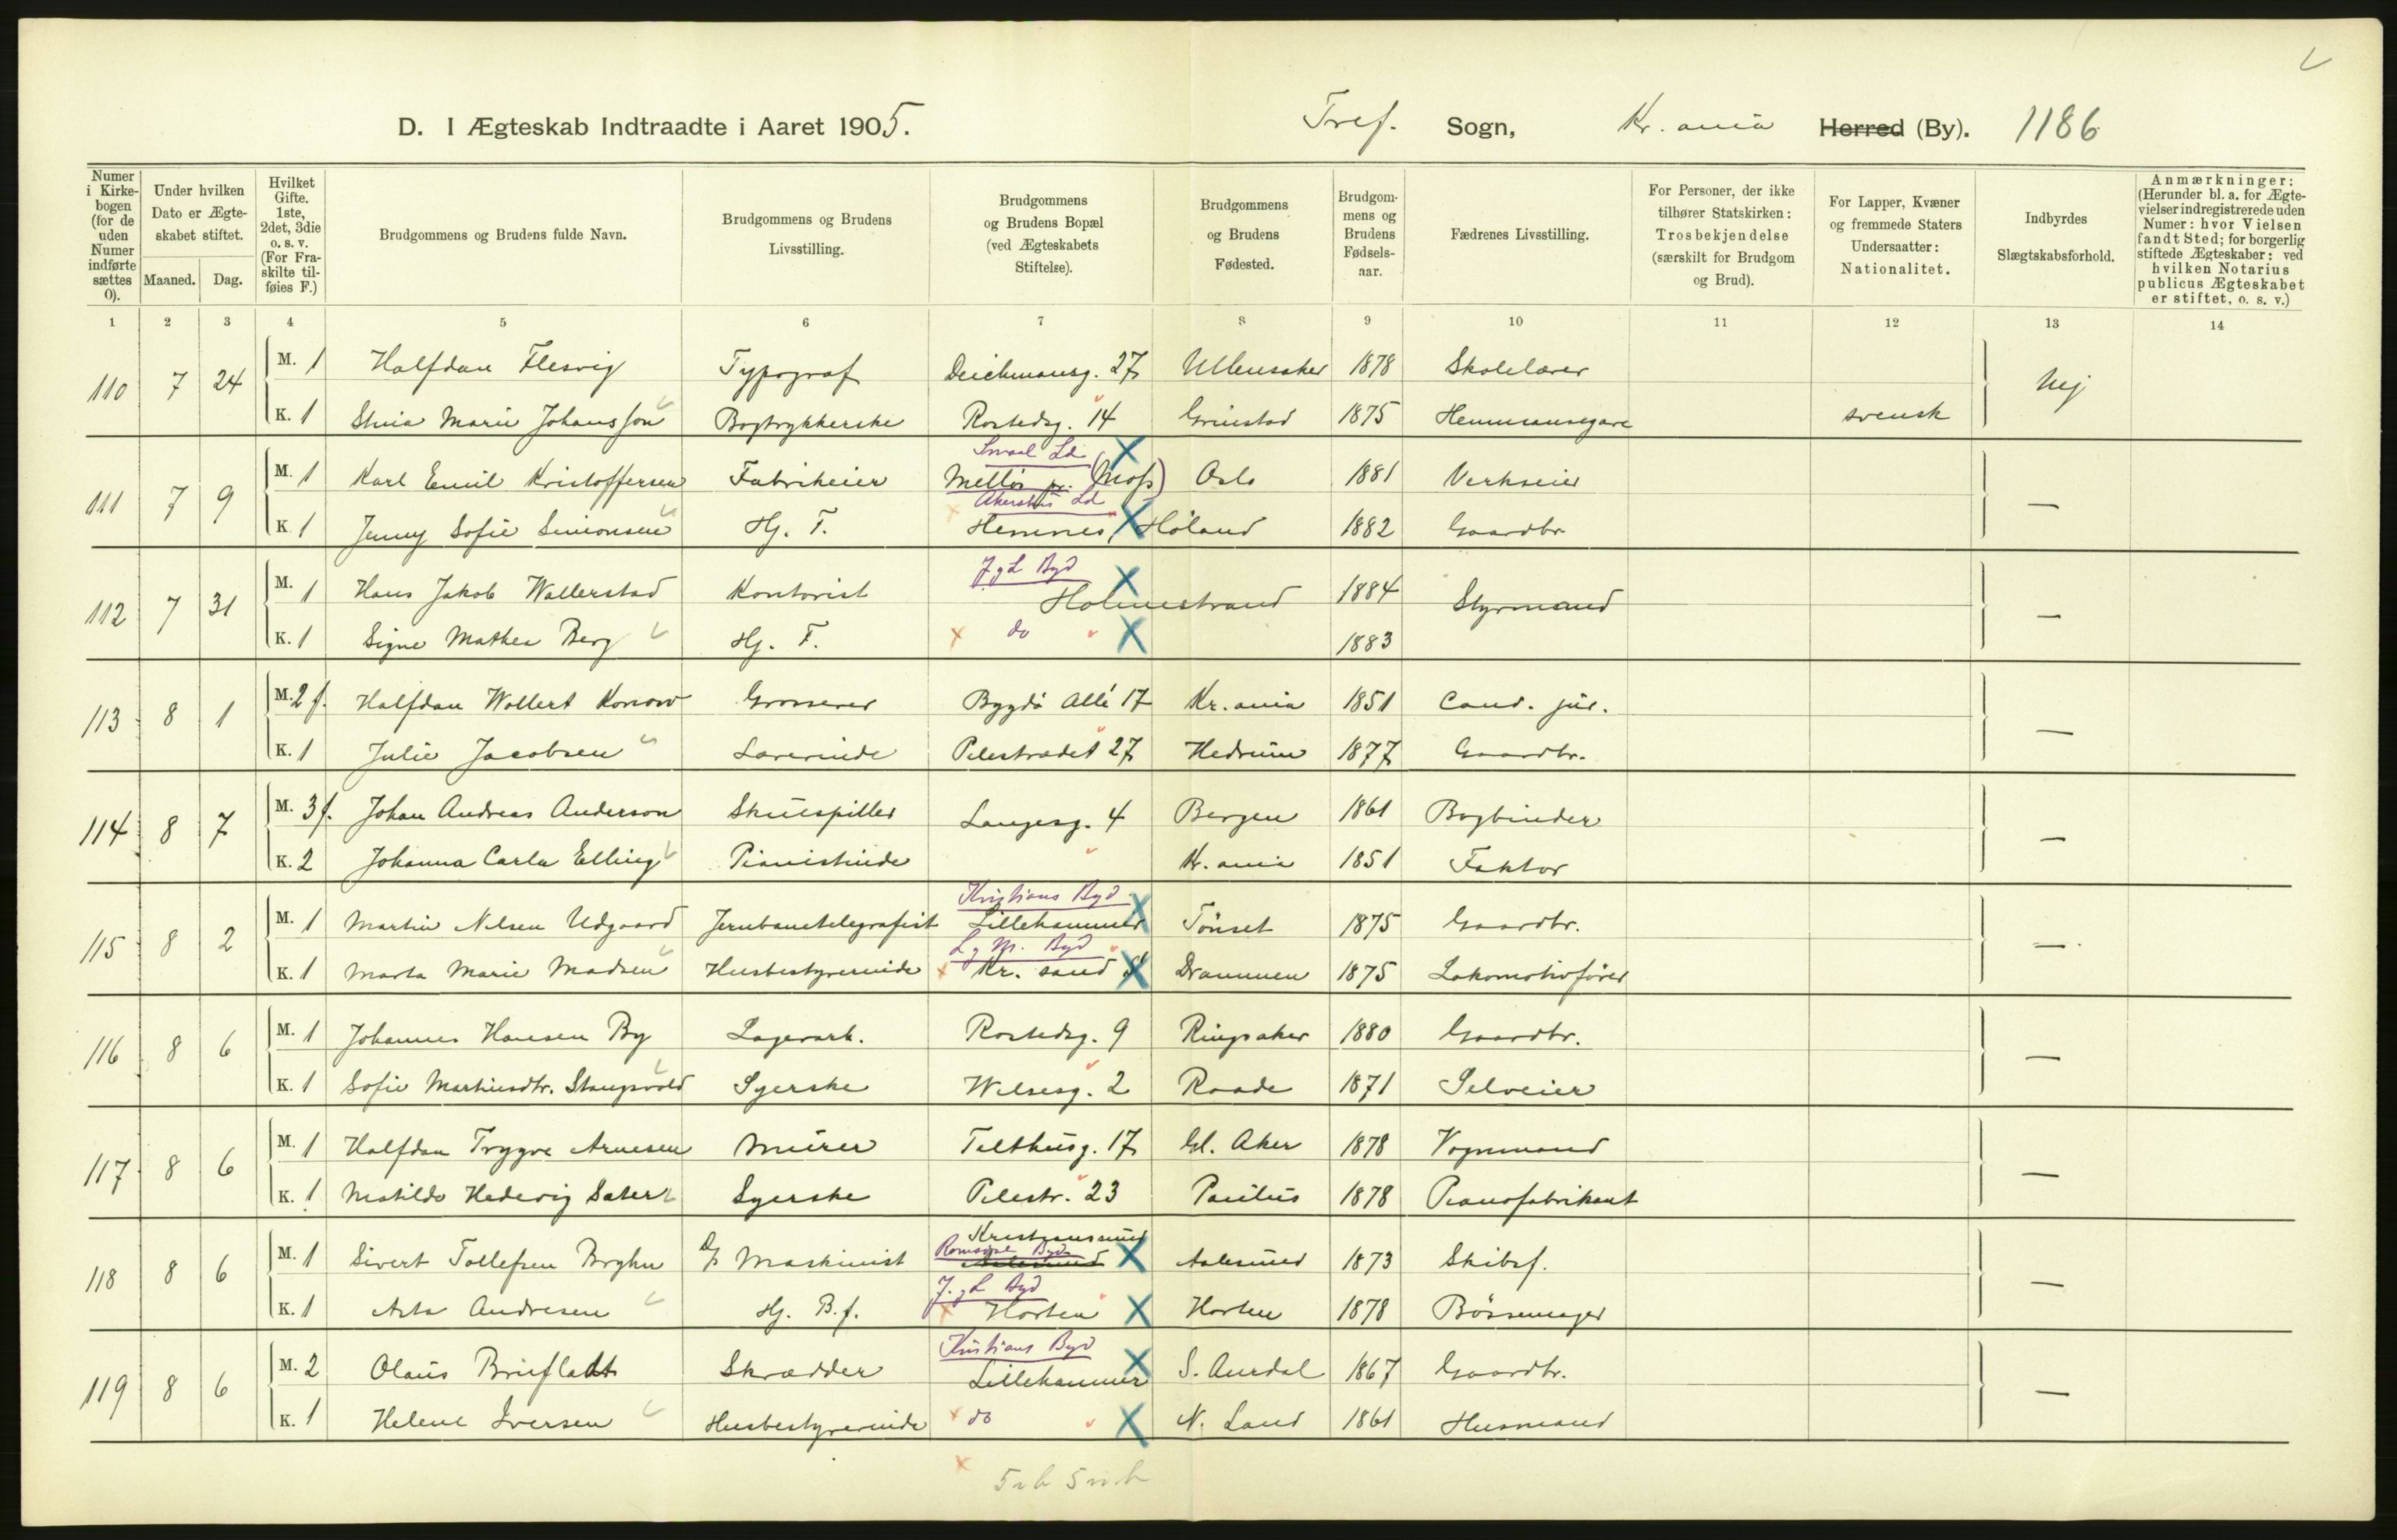 D. I Ægteskab Indtraadte i Aaret 1905. Tref. Sogn, Kr.ania Herred (By). 1186
Numer i Kirkebogen (for de uden Numer indførte sættes 0).
Under hvilken Dato er Ægteskabet stiftet.
Maaned. Dag.
Hvilket Gifte. 1ste, 2det, 3die o. s. v. (For Fraskilte tilføies F.)
Brudgommens og Brudens fulde Navn.
Brudgommens og Brudens Livsstilling.
Brudgommens og Brudens Bopæl (ved Ægteskabets Stiftelse).
Brudgommens og Brudens Fødested.
Brudgommens og Brudens Fødselsaar.
Fædrenes Livsstilling.
For Personer, der ikke tilhører Statskirken: Trosbekjendelse (særskilt for Brudgom og Brud).
For Lapper, Kvæner og fremmede Staters Undersaatter: Nationalitet.
Indbyrdes Slægtskabsforhold.
Anmærkninger: (Herunder bl. a. for Ægtevielser indregistrerede uden Numer: hvor Vielsen fandt Sted; for borgerlig stiftede Ægteskaber: ved hvilken Notarius publicus Ægteskabet er stiftet, o. s. v.)
1 2 3 4 5 6 7 8 9 10 11 12 13 14
110 7 24 M. 1 Halfdan Flesvig Typograf Deichmansg. 27 Ullensaker 1878 Skolelærer Nej
K. 1 Marie Johansson Bogtrykkerske Rostedsg. 14 Grinstad 1875 Hemmansegare svensk
Smaal Ld
111 7 9 M. 1 Karl Emil Kristoffersen Fabrikeier Melløs pr. (Moss) Oslo 1881 Verkseier —
Akershus Ld
K. 1 Jenny Sofie Simonsen Hj. T. Hemnes, Høland 1882 Gaardbr.
J & L Byd
112 7 31 M. 1 Hans Jakob Wallerstad Kontorist Holmestrand 1884 Styrmand —
K. 1 Signe Mathea Berg Hj. T. do 1883
113 8 1 M. 2 f. Halfdan Wollert Konow Grosserer Bygdø Allé 17 Kr.ania 1851 Cand. jur. —
K. 1 Julie Jacobsen Lærerinde Pilestrædet 27 Hedrum 1877 Gaardbr.
114 8 7 M. 3 f. Johan Andreas Anderson Skuespiller Langesg. 4 Bergen 1861 Bogbinder —
K. 2 Johanna Carla Elling Pianistinde Kr.ania 1851 Faktor
Kristians Byd
115 8 2 M. 1 Martin Nilsen Udgaard Jernbanetelegrafist Lillehammer Tönset 1875 Gaardbr. —
L & M. Byd
K. 1 Marta Marie Madsen Husbestyrerinde Kr.sand S Drammen 1875 Lokomotivfører
116 8 6 M. 1 Johannes Hansen By Lagerarb. Rostedsg. 9 Ringsaker 1880 Gaardbr. —
K. 1 Sofie Martinsdtr. Stangsvold Syerske Wilsesg. 2 Raade 1871 Selveier
117 8 6 M. 1 Halfdan Trygve Arnesen Murer Telthusg. 17 Gl. Aker 1878 Vognmand —
K. 1 Matilde Hedevig Sater Syerske Pilestr. 23 Paulus 1878 Pianofabrikant
Kristianssund
118 8 6 M. 1 Sivert Tollefsen Bryhn D/S Maskinist Romsdal Byd Aalesund Aalesund 1873 Skibsf. —
J. & L Byd
K. 1 Asta Andresen Hj. B.f. Horten Horten 1878 Bössemager
Kristians Byd
119 8 6 M. 2 Olaus Briefladt Skrædder Lillehammer S. Aurdal 1867 Gaardbr. —
K. 1 Helene Iversen Husbestyrerinde do N. Land 1861 Husmand